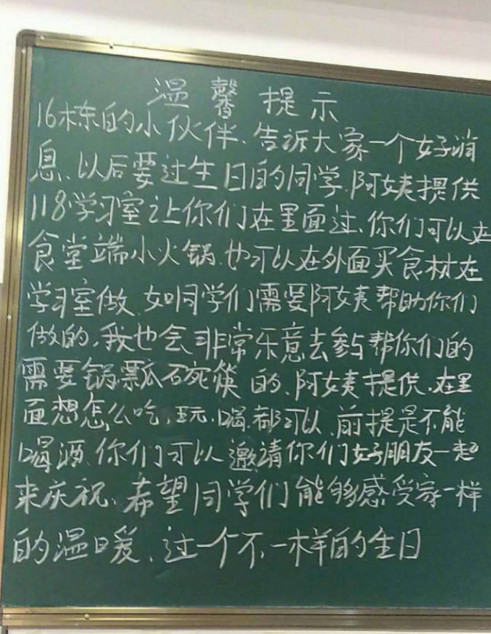 温馨提示
16栋的小伙伴、告诉大家一个好消
息、以后要过生日的同学、阿姨提供
118学习室让你们在里面过、你们可以在
食堂端小火锅、也可以在外面买食材在
学习室做、如同学们需要阿姨帮助你们
做的，我也会非常乐意去参与帮你们的
需要锅瓢碗筷的、阿姨提供、在里
面想怎么吃，玩，喝都可以、前提是不能
喝酒、你们可以邀请你们好朋友一起
来庆祝、希望同学们能够感受家一样
的温暖、过一个不一样的生日